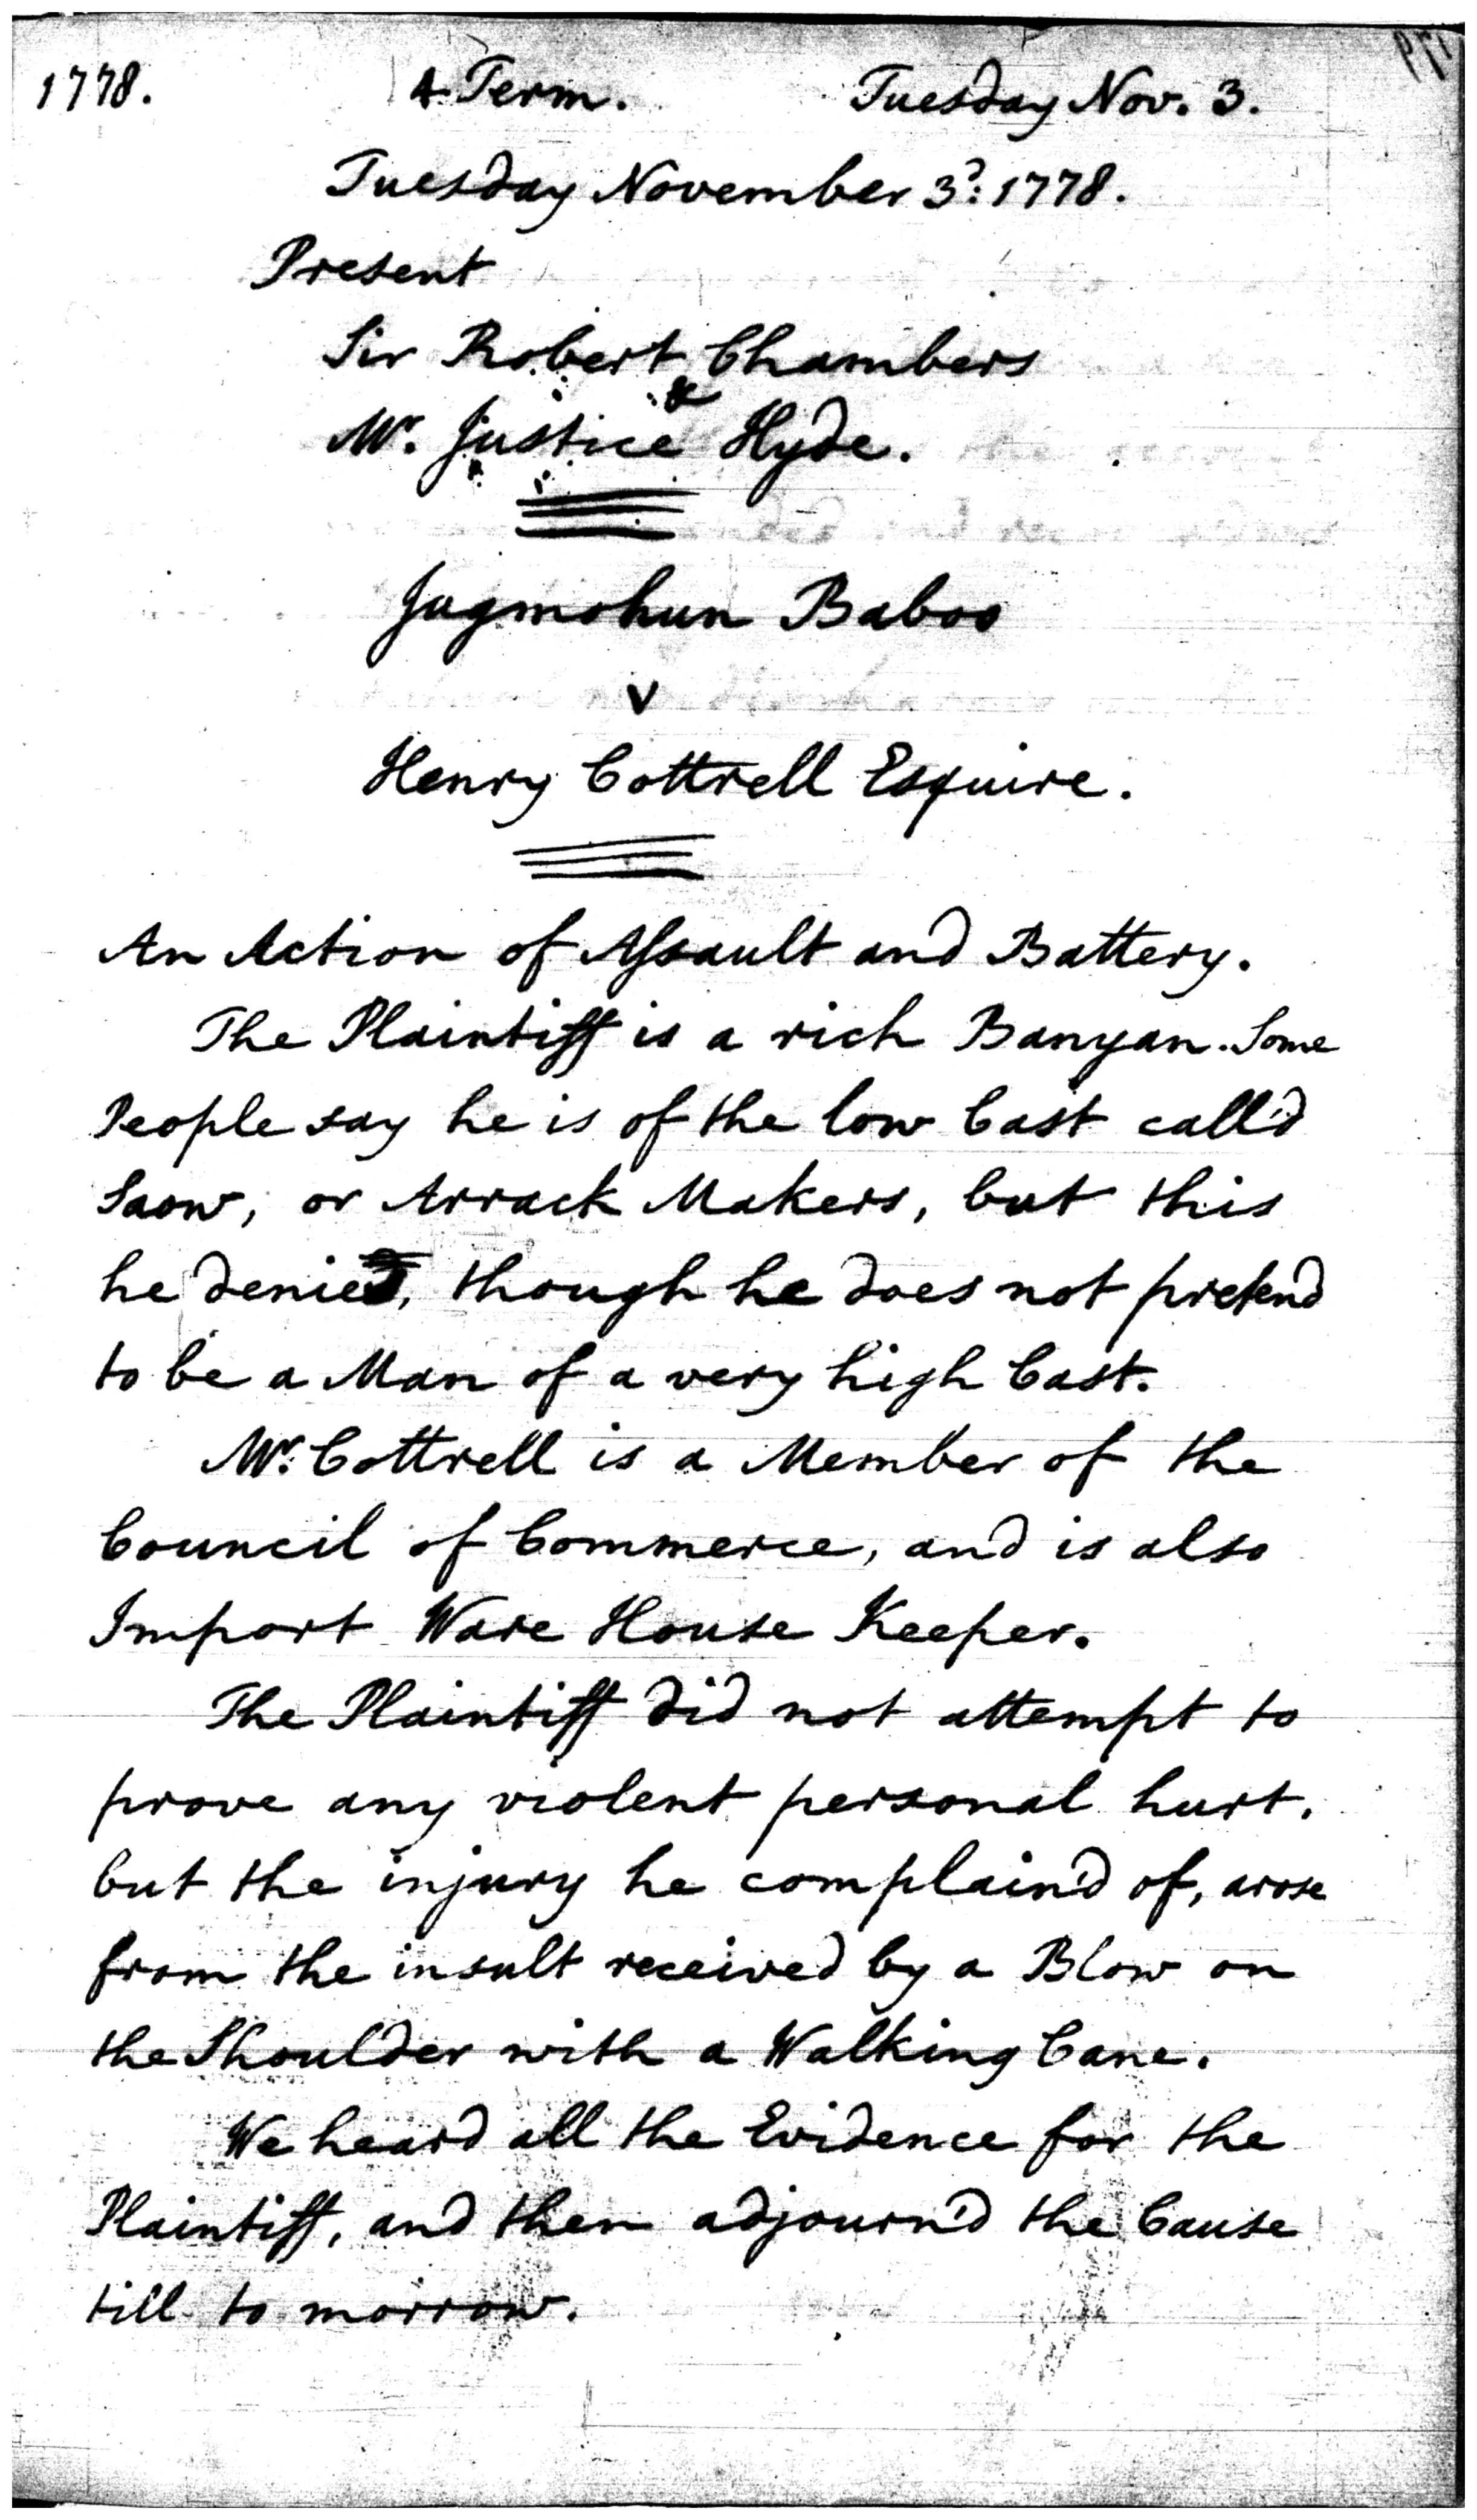 1778. 4 Term. Tuesday Nov. 3.
Tuesday November 3d: 1778.
Present
Sir Robert Chambers
&
Mr. Justice Hyde.
Jugmohun Baboo
v
Henry Cottrell Esquire.
An Action of Assault and Battery.
The Plaintiff is a rich Banyan. Some
People say he is of the low Cast call'd
Saow, or Arrack Makers, but this
he denies, though he does not pretend
to be a Man of a very high Cast.
Mr. Cottrell is a Member of the
Council of Commerce, and is also
Import Ware House Keeper.
The Plaintiff did not attempt to
prove any violent personal hurt,
but the injury he complain'd of, arose
from the insult received by a Blow on
the Shoulder with a Walking Cane.
We heard all the Evidence for the
Plaintiff, and then adjourn'd the Cause
till to morrow.